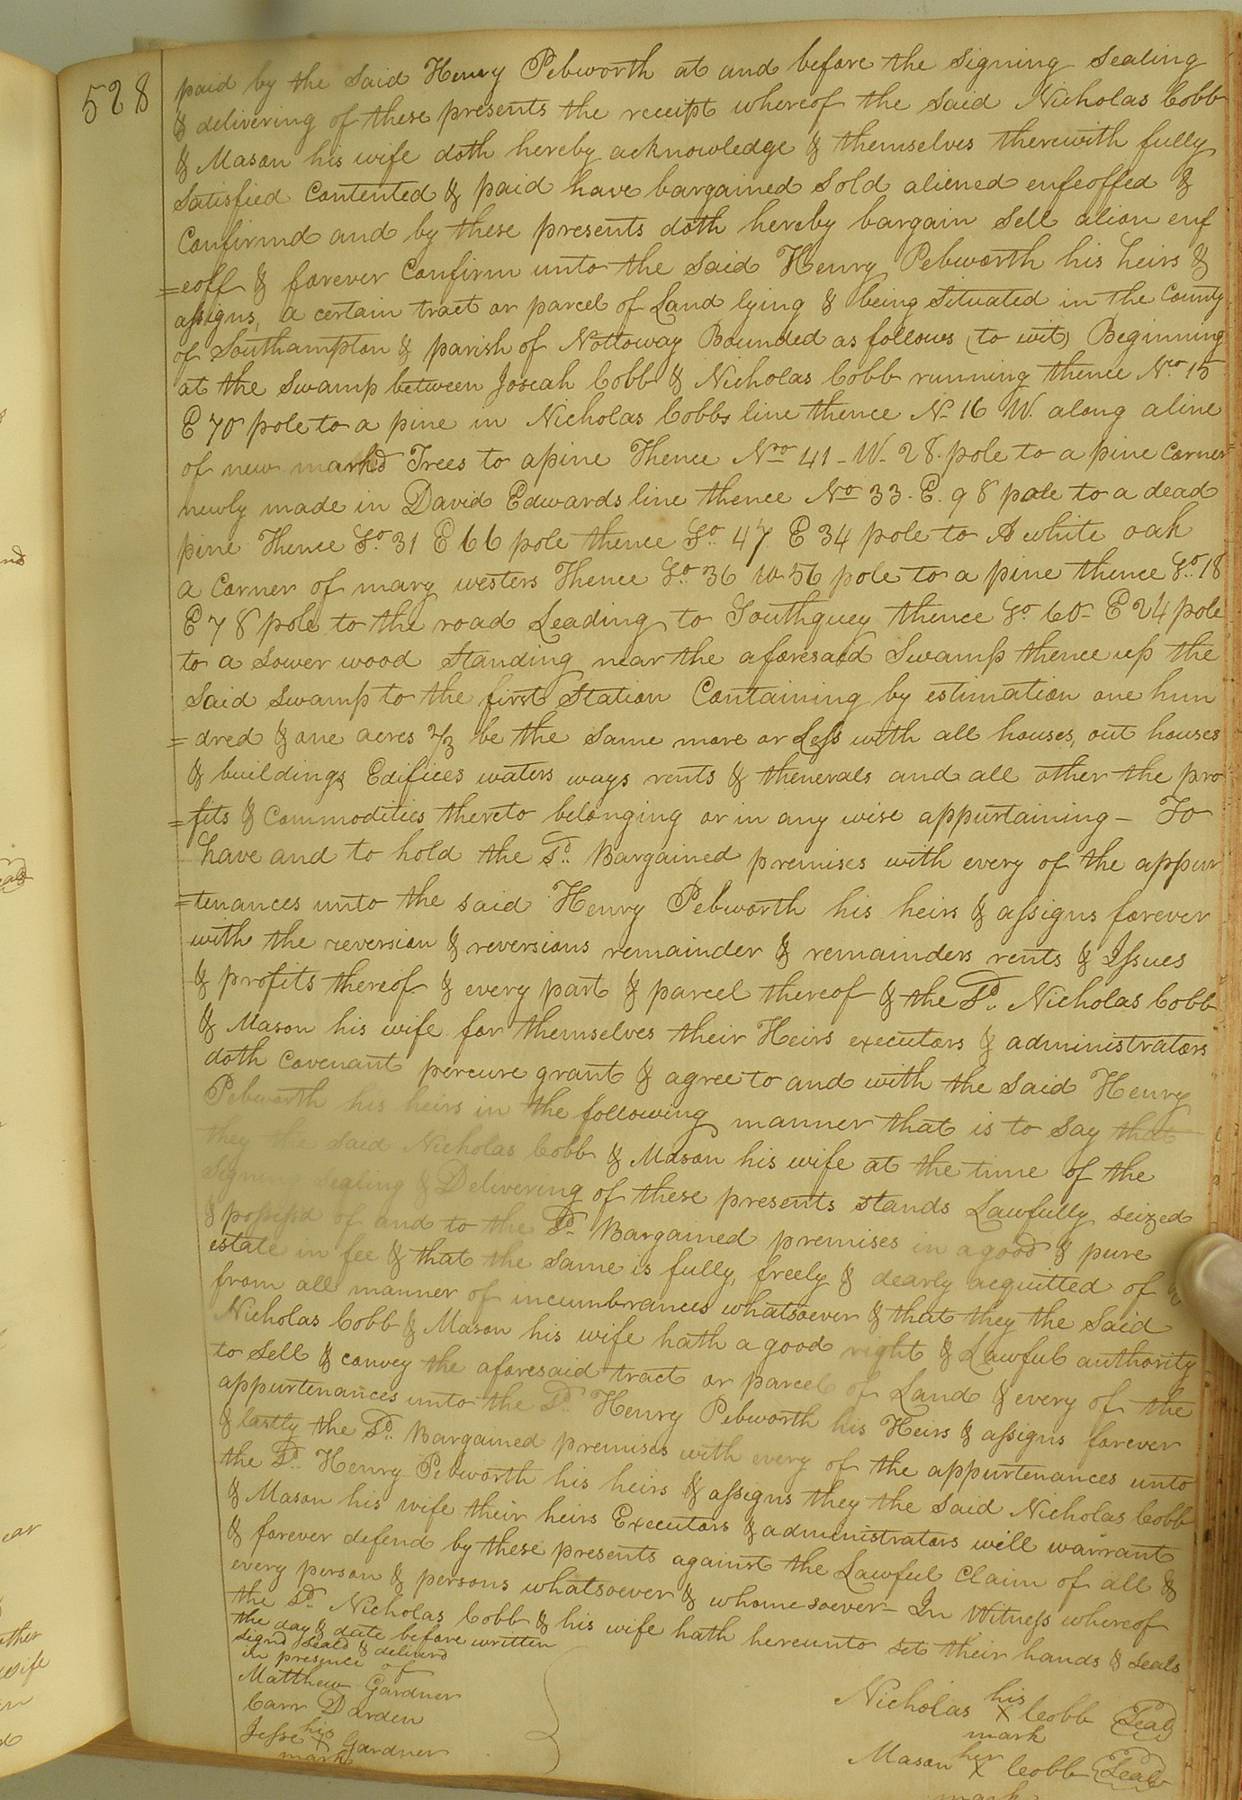 528
paid by the Said Henry Pebworth at and before the Signing Sealing
& delivering of these presents the receipt whereof the Said Nicholas Cobb
& Mason his wife doth hereby acknowledge & themselves therewith fully
Satisfied Contented & paid have bargained Sold aliened enfeoffed &
Confirmd and by these presents doth hereby bargain Sell alian enf
=eoff & forever Confirm unto the Said Henry Pebworth his heirs &
assigns, a certain tract or parcel of Land lying & being Situated in the County
of Southampton & parish of Nottoway Bounded as follows (to wit) Beginning
at the Swamp between Joseah Cobb & Nicholas Cobb running thence No. 15
E 70 pole to a pine in Nicholas Cobbs line thence No 16 W. along a line
of new markd Trees to a pine Thence No 41 - W- 28. pole to a pine Corner
newly made in David Edwards line thence No 33. E. 98 pole to a dead
pine Thence So. 31 E 66 pole thence So. 47 E 34 pole to A white oak
a Corner of mary westers Thence So. 36 W 56 pole to a pine thence So. 18
E 78 pole to the road Leading to Southquey thence So 60- E 24 pole
to a Sower wood Standing near the aforesaid Swamp thence up the
Said Swamp to the first Station Containing by estimation one hun
=dred & one acres 2/3 be the Same more or Less with all houses, out houses
& buildings Edifices waters ways rents & thenerals and all other the pro
=fits & Commodities thereto belonging or in any wise appurtaining - To
have and to hold the Sd. Bargained premises with every of the appur
=tenances unto the said Henry Pebworth his heirs & assigns forever
with the reversion & reversions remainder & remainders rents & Issues
& profits thereof & every part & parcel thereof & the Sd. Nicholas Cobb
& Mason his wife for themselves their Heirs executors & administrators
doth Covenant percure grant & agree to and with the Said Henry
Pebworth his heirs in the following manner that is to Say that
they the Said Nicholas Cobb & Mason his wife at the time of the
Signing sealing & Delivering of these presents stands Lawfully seized
& possissd of and to the Sd. Bargained premises in a good & pure
estate in fee & that the Same is fully, freely & clearly acquitted of &
from all manner of incumbrances whatsoever & that they the Said
Nicholas Cobb & Mason his wife hath a good right & Lawful authority
to Sell & convey the aforesaid tract or parcel of Land & every of the
appurtenances unto the Sd. Henry Pebworth his Heirs & assigns forever
& lastly the Sd. Bargained premises with every of the appurtenances unto
the Sd. Henry Pebworth his heirs & assigns they the Said Nicholas Cobb
& Mason his wife their heirs Executors & administrators will warrant
& forever defend by these presents against the Lawful Claim of all &
every person & persons whatsoever & whomesoever - In Witness whereof
the Sd. Nicholas Cobb & his wife hath hereunto set their hands & Seals
the day & date before written
Signd Seald & deliverd
in presence of
Matthew Gardner
Carr Darden
his
Jesse X Gardner
mark
his
Nicholas X Cobb Seal
mark
her
Mason X Cobb Seal
mark